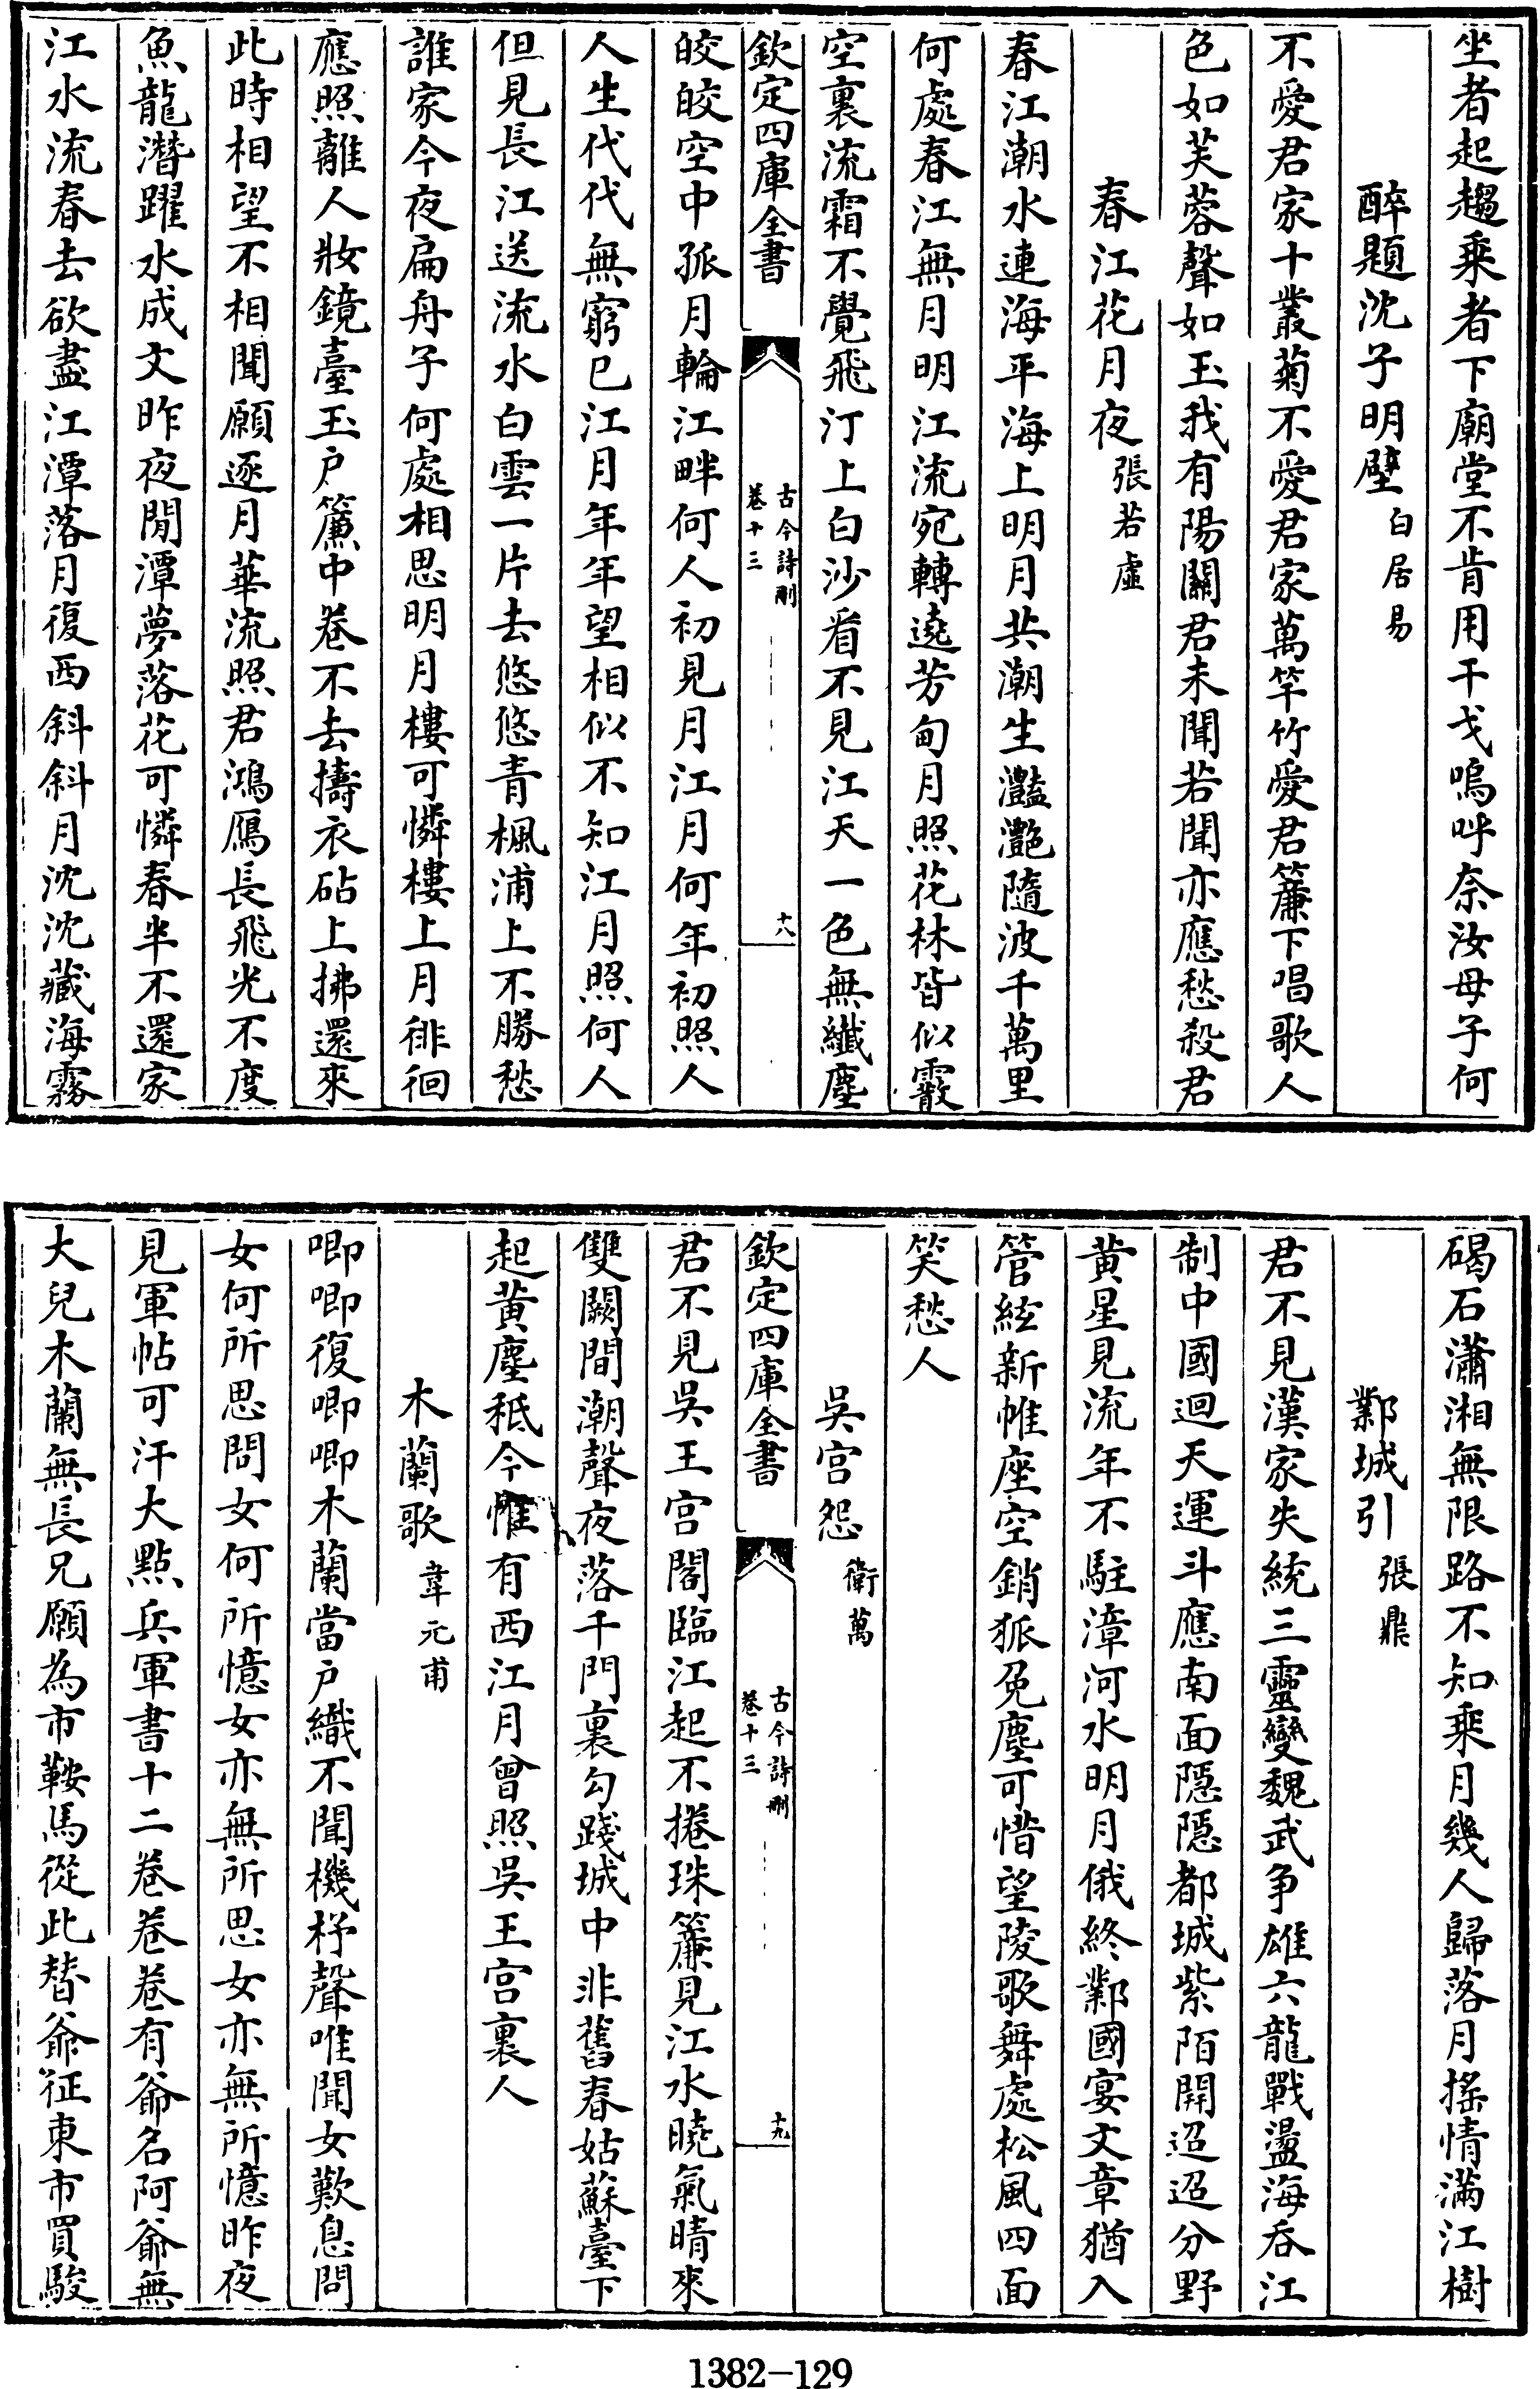 坐者起趨乘者下廟堂不肯用干戈嗚呼奈汝母子何
醉題沈子明壁白居易
不愛君家十叢菊不愛君家萬竿竹愛君簾下唱歌人
色如芙蓉聲如玉我有陽關君未聞若聞亦應愁殺君
春江花月夜張若虛
春江潮水連海平海上明月共潮生灩灧隨波千萬里
何處春江無月明江流宛轉遶芳甸月照花林皆似霰
空裏流霜不覺飛汀上白沙看不見江天一色無纖塵
欽定四庫全書
古今詩刪
卷十三
十八
皎皎空中孤月輪江畔何人初見月江月何年初照人
人生代代無窮已江月年年望相似不知江月照何人
但見長江送流水白雲一片去悠悠青楓浦上不勝愁
誰家今夜扁舟子何處相思明月樓可憐樓上月徘徊
應照離人妝鏡臺玉戶簾中卷不去擣衣砧上拂還來
此時相望不相聞願逐月華流照君鴻鴈長飛光不度
魚龍潛躍水成文昨夜閒潭夢落花可憐春半不還家
江水流春去欲盡江潭落月復西斜斜月沈沈藏海霧
碣石瀟湘無限路不知乘月幾人歸落月搖情滿江樹
鄴城引張鼎
君不見漢家失統三靈變魏武爭雄六龍戰盪海吞江
制中國迴天運斗應南面隱隱都城紫陌開迢迢分野
黃星見流年不駐漳河水明月俄終鄴國宴文章猶入
管絃新帷座空銷狐兔塵可惜望陵歌舞處松風四面
笑愁人
吳宮怨衛萬
欽定四庫全書
古今詩刪
卷十三
十九
君不見吳王宮閣臨江起不捲珠簾見江水曉氣晴來
雙闕間潮聲夜落千門裏勾踐城中非舊春姑蘇臺下
起黃塵秪今惟有西江月曾照吳王宮裏人
木蘭歌韋元甫
唧唧復唧唧木蘭當戶織不聞機杼聲唯聞女歎息問
女何所思問女何所憶女亦無所思女亦無所憶昨夜
見軍帖可汗大點兵軍書十二卷卷卷有爺名阿爺無
大兒木蘭無長兄願為市鞍馬從此替爺征東市買駿
1382-129